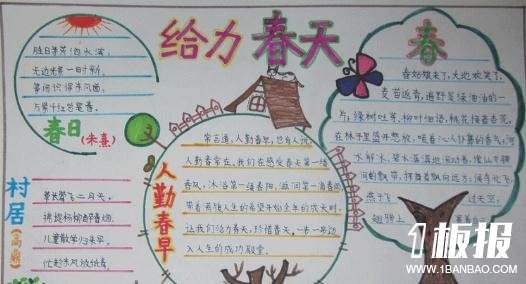 给力春天
胜日寻芳泗水滨,
无边光景一时新,
等闲识得东风面,
万紫千红总是春。
春日
(朱熹)
村居
(高鼎)
草长莺飞二月天,
拂堤杨柳醉春烟。
儿童散学归来早,
忙趁东风放纸鸢。
人勤春早
常言道,人勤春早,也有人说,
人勤春常在,我们在感受春天第一缕
春风,沐浴第一缕春阳,滋润第一滴春雨
带着两种人的希望开始全年的成天时,
让我们给力春天,珍惜春天,一步一步迈
入人生的成功殿堂。
春
春姑娘来了,大地欢笑了。
麦苗返青,遍野是绿油油的一
片,绿树吐芽,柳叶细语,桃花
在林子里盛开怒放,
河水解冻,碧水潺潺地流动着,
燕子飞
过天空,
翅膀上
1板报
WWW.1BANBAO.COM